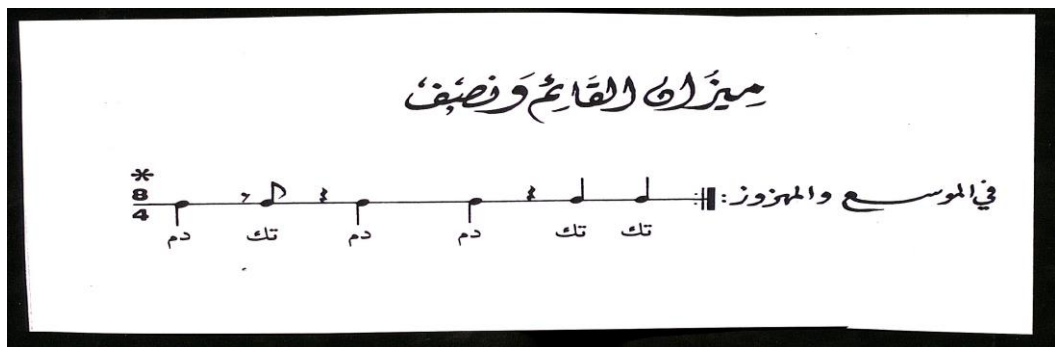 مِيزَان القَائِم وَنصِف
في الموسع والمهزوز:
*
8
4
دم تك دم دم تك تك